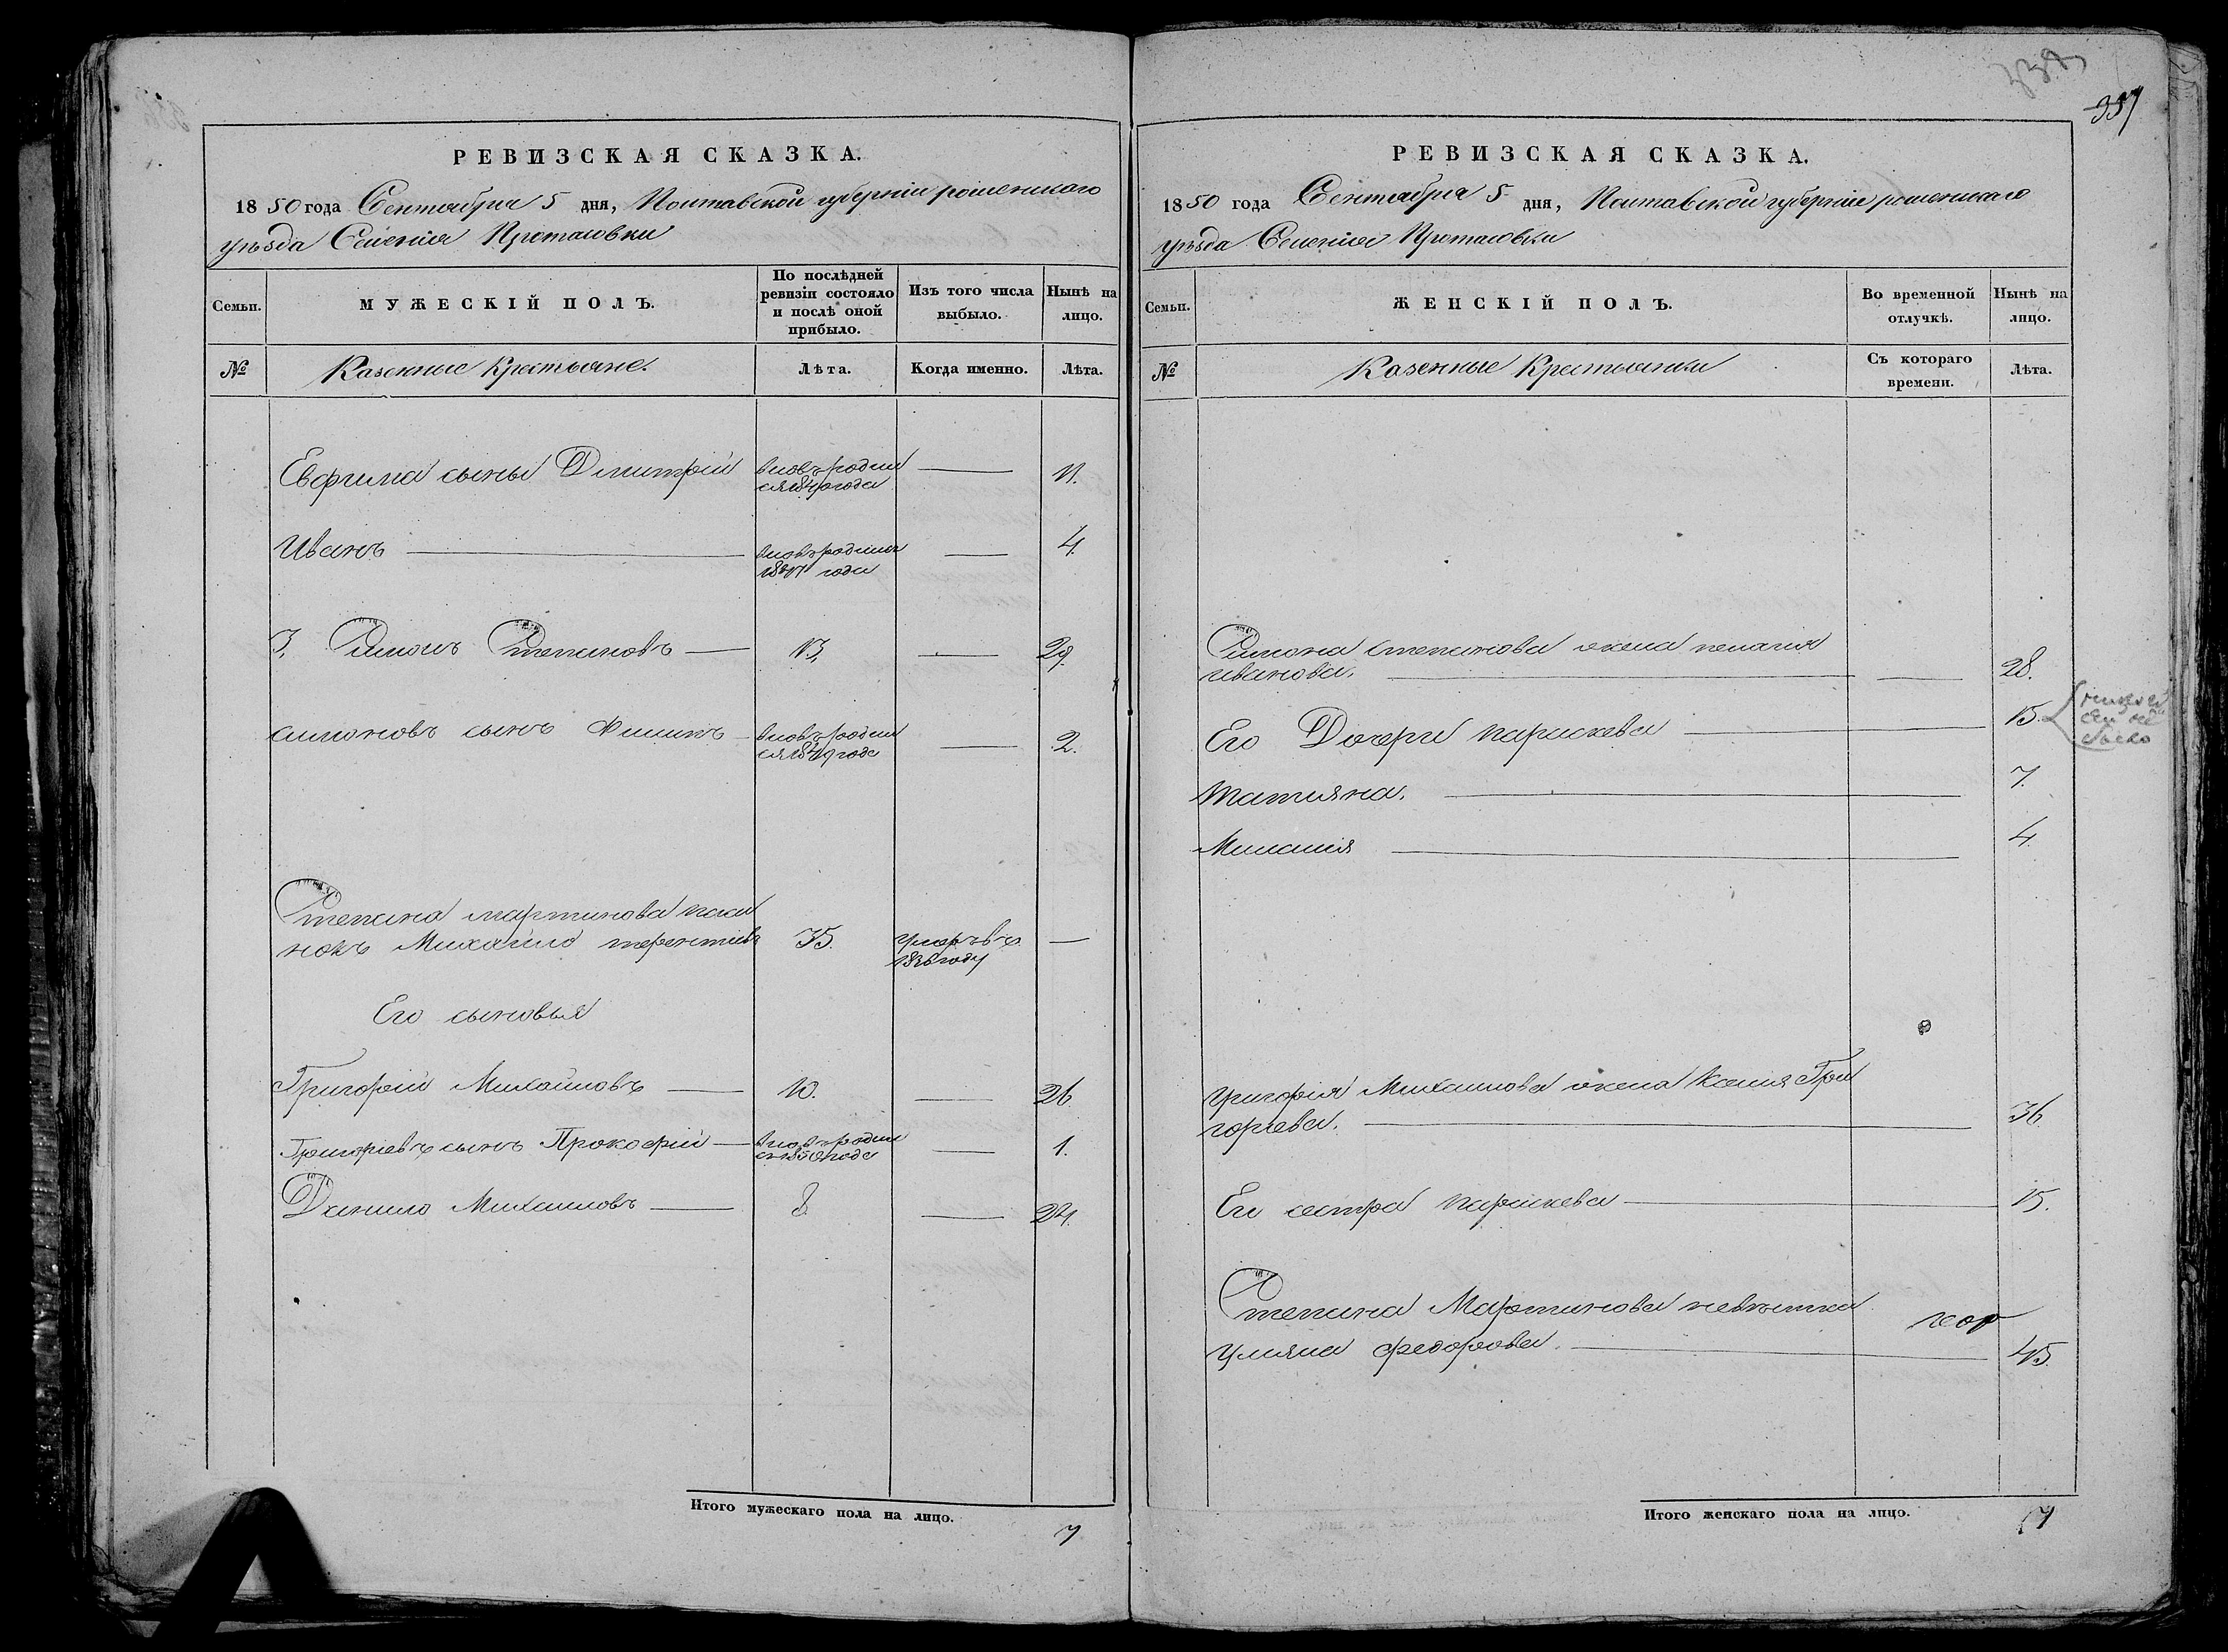 337
РЕВИЗСКАЯ СКАЗКА.
1850 года Сентября 5 дня, Полтавской губерніи роменскаго
уѣзда Селенія Протасовки
Семьи.
МУЖЕСКІЙ ПОЛЪ.
По послѣдней ревизіи состояло и послѣ оной прибыло.
Изъ того числа выбыло.
Нынѣ на лицо.
№
Казенные Крестьяне.
Лѣта.
Когда именно.
Лѣта.
Евфима сыны Дмитрій вновь родил
ся 1840 года — 11.
Иванъ — вновь родился
1847 года — 4.
3. Симонъ Степановъ — 13, — 29.
симоновъ сынъ Филипъ вновь родил
ся 1849 года — 2.
Степана мартинова плем
нокъ Михайло терентіевъ 35. умеръ въ —
1836 году
Его сыновья
Григорій Михайловъ — 10. — 26
Григоріевъ сынъ Прокофій — вновь родил
ся 1850 года — 1.
Данило Михайловъ — 8. — 24.
Итого мужескаго пола на лицо.
7
РЕВИЗСКАЯ СКАЗКА.
1850 года Сентября 5 дня, Полтавской губерніи роменскаго
уѣзда Селенія Протасовки
Семьи.
ЖЕНСКІЙ ПОЛЪ.
Во временной отлучкѣ.
Нынѣ на лицо.
№
Казенные Крестьянки
Съ котораго времени.
Лѣта.
Симона степанова жена пелагія
иванова. — — 28.
Его Дочери параскева — 15.
татияна. — 7.
Миланія — 4.
григорія Михайлова жена Ксенія Гри
горіева. — 36
Его сестра параскева — 15.
Степана Мартинова невѣстка
Улияна федорова. — 45.
Итого женскаго пола на лицо.
7